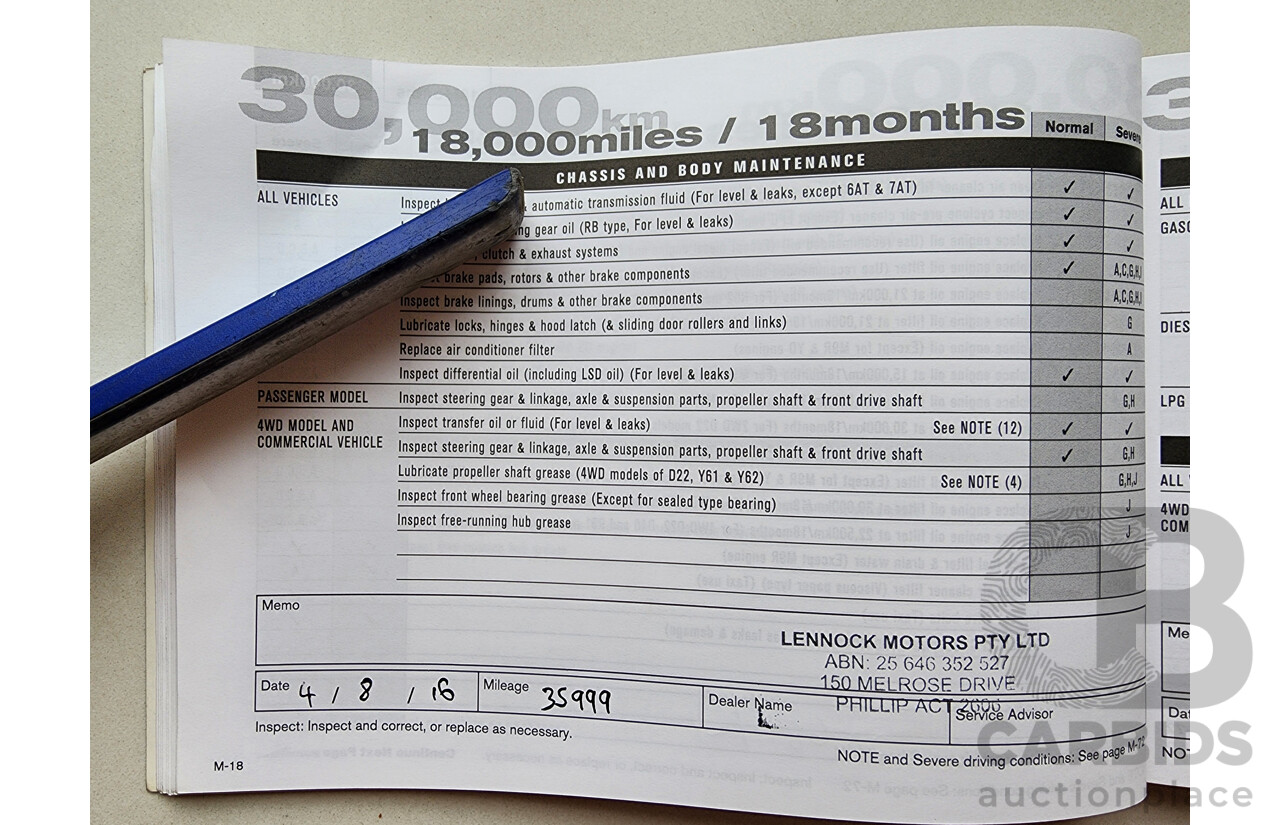 30,000km
18,000miles / 18months
Normal
Severe
CHASSIS AND BODY MAINTENANCE
ALL VEHICLES
Inspect & automatic transmission fluid (For level & leaks, except 6AT & 7AT) ✓ ✓
gear oil (RB type, For level & leaks) ✓ ✓
clutch & exhaust systems ✓ ✓
brake pads, rotors & other brake components ✓ A,C,G,H,I
Inspect brake linings, drums & other brake components A,C,G,H,I
Lubricate locks, hinges & hood latch (& sliding door rollers and links) G
Replace air conditioner filter A
Inspect differential oil (including LSD oil) (For level & leaks) ✓ ✓
PASSENGER MODEL Inspect steering gear & linkage, axle & suspension parts, propeller shaft & front drive shaft G,H
4WD MODEL AND
COMMERCIAL VEHICLE
Inspect transfer oil or fluid (For level & leaks) See NOTE (12) ✓ ✓
Inspect steering gear & linkage, axle & suspension parts, propeller shaft & front drive shaft ✓ G,H
Lubricate propeller shaft grease (4WD models of D22, Y61 & Y62) See NOTE (4) G,H,J
Inspect front wheel bearing grease (Except for sealed type bearing) J
Inspect free-running hub grease J
Memo
LENNOCK MOTORS PTY LTD
ABN: 25 646 352 527
150 MELROSE DRIVE
PHILLIP ACT 2606
Date 4 / 8 / 16
Mileage 35999
Dealer Name
Service Advisor
Inspect: Inspect and correct, or replace as necessary.
NOTE and Severe driving conditions: See page M-72
M-18
ALL
DIES
LPG
ALL
4WD
COM
Me
NO
CARBIDS
auctionplace